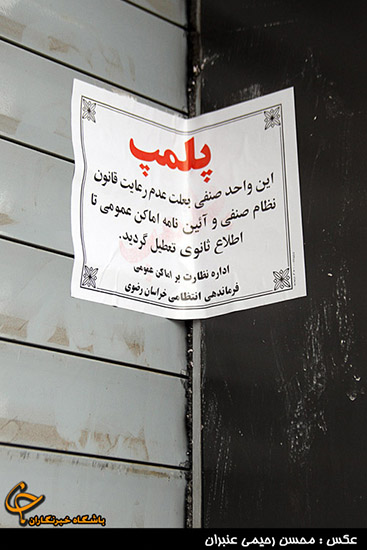 پلمپ
این واحد صنفی بعلت عدم رعایت قانون
نظام صنفی و آئین نامه اماکن عمومی تا
اطلاع ثانوی تعطیل گردید.
اداره نظارت بر اماکن عمومی
فرماندهی انتظامی خراسان رضوی
باشگاه خبرنگاران
عکس : محسن رحیمی عنبران